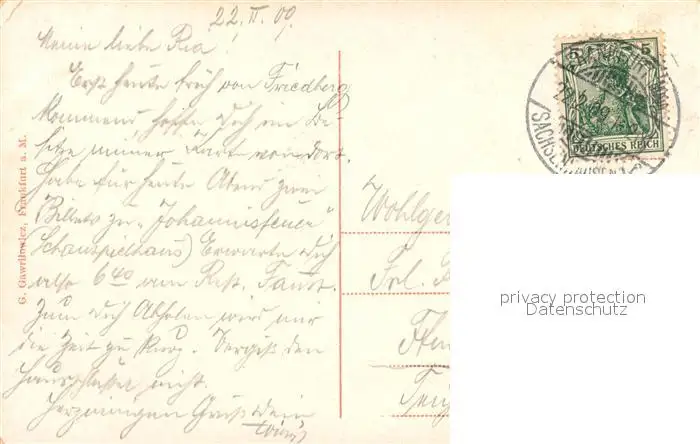 22. II. 09.
Meine liebe Ria!
Erst heute früh von Friedberg
kommend hoffe Dich im Be-
sitze meiner Karte von dort.
Habe für heute Abend zwei
Billets zu "Johannisfeuer"
(Schauspielhaus) Erwarte Dich
also 6 40 am Rest. Faust.
Zum Dich Abholen wird mir
die Zeit zu kurz. Vergiß den
Hausschlüssel nicht.
Herzinnigen Gruß Dein
G. Gawrilowicz, Frankfurt a. M.
5 5
DEUTSCHES REICH
FRANKFURT
SACHSENHAUSEN
Wohlge
Frl.
privacy protection
Datenschutz